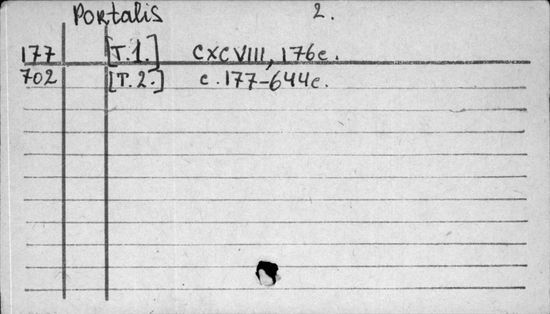 Portalis 2.
177 [T.1.] CXCVIII, 176c.
702 [T.2.] c.177-644c.